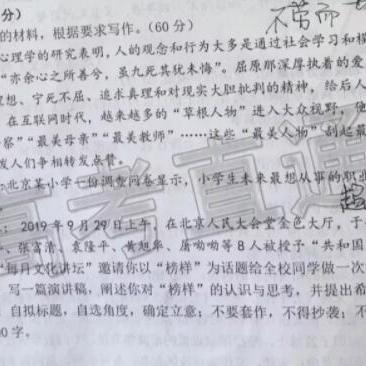 不劳而
分）
的材料，根据要求写作。（60分）
心理学的研究表明，人的观念和行为大多是通过社会学习和模
“亦余心之所善兮，虽九死其犹未悔”。屈原那深厚执着的爱
理想、宁死不屈、追求真理和对现实大胆批判的精神，给后人
在互联网时代，越来越多的“草根人物”进入大众视野，他
察”“最美母亲”“最美教师”……这些“最美人物”刮起最
发人们争相转发点赞。
北京某小学一份调查问卷显示，小学生未来最想从事的职业
：2019年9月29日上午，在北京人民大会堂金色大厅，于
、张富清、袁隆平、黄旭华、屠呦呦等8人被授予“共和国
“每月文化讲坛”邀请你以“榜样”为话题给全校同学做一次
写一篇演讲稿，阐述你对“榜样”的认识与思考，并提出希
自拟标题，自选角度，确定立意；不要套作，不得抄袭；不
0字。
高考直通